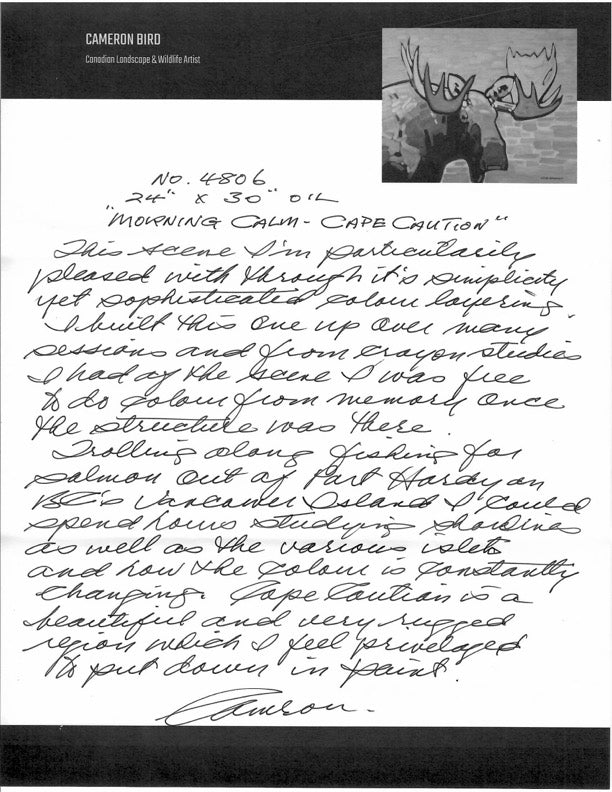 CAMERON BIRD
Canadian Landscape & Wildlife Artist
NO. 4806
24" x 30" OIL
"MORNING CALM - CAPE CAUTION"
This scene I'm particularily
pleased with through it's simplicity
yet sophisticated colour layering.
I built this one up over many
sessions and from crayon studies
I had of the scene I was free
to do colour from memory once
the structure was there.
Trolling along fishing for
salmon out of Port Hardy on
BC's Vancouver Island I could
spend hours studying shorelines
as well as the various islets
and how the colour is constantly
changing. Cape Caution is a
beautiful and very rugged
region which I feel priveleged
to put down in paint.
Cameron.